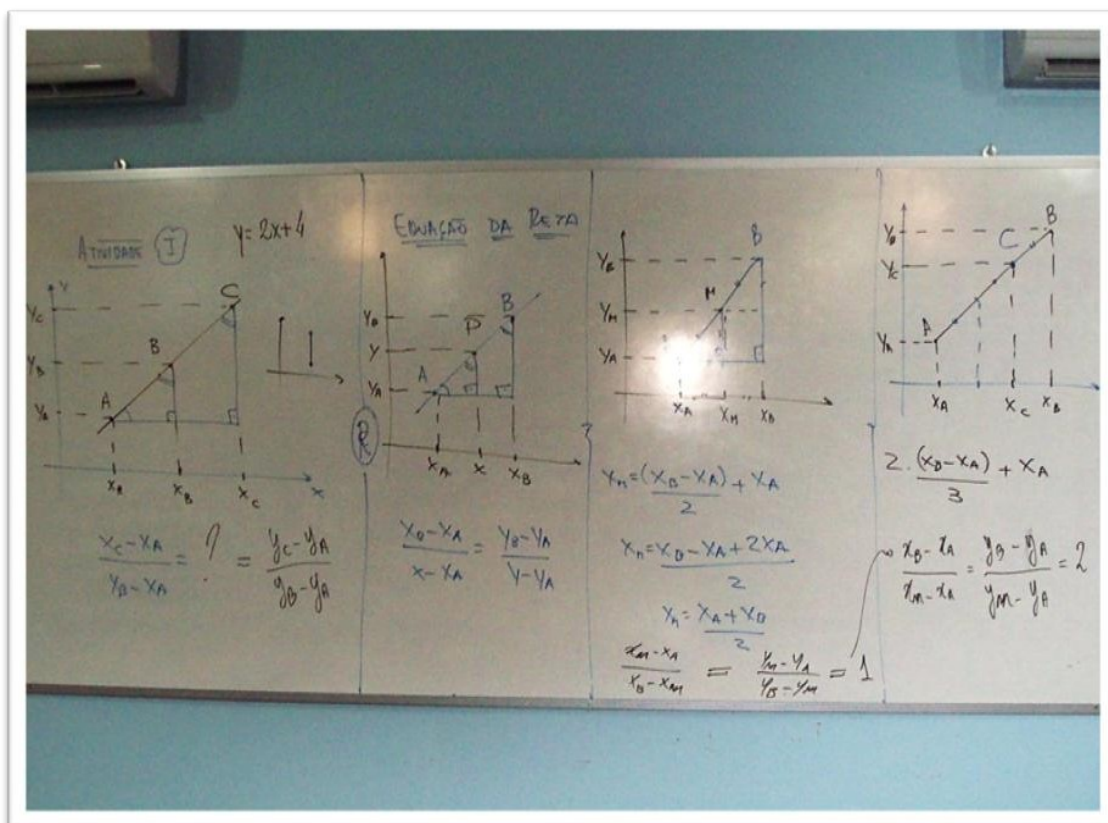 ATIVIDADE I
y=2x+4
Y
C
Y_C
B
Y_B
A
Y_A
X_A
X_B
X_C
X
\frac{X_C-X_A}{X_B-X_A} = ? = \frac{y_C-y_A}{y_B-y_A}
EQUAÇÃO DA RETA
B
Y_B
P
Y
A
Y_A
R
X_A
X
X_B
\frac{X_B-X_A}{X-X_A} = \frac{Y_B-Y_A}{Y-Y_A}
B
Y_B
M
Y_M
Y_A
X_A
X_M
X_B
X_M = \frac{(X_B-X_A)}{2} + X_A
X_M = \frac{X_B-X_A+2X_A}{2}
X_M = \frac{X_A+X_B}{2}
\frac{x_M-x_A}{x_B-x_M} = \frac{y_M-y_A}{y_B-y_M} = 1
B
Y_B
C
Y_C
A
Y_A
X_A
X_C
X_B
2.\frac{(X_B-X_A)}{3} + X_A
\frac{x_B-x_A}{x_M-x_A} = \frac{y_B-y_A}{y_M-y_A} = 2